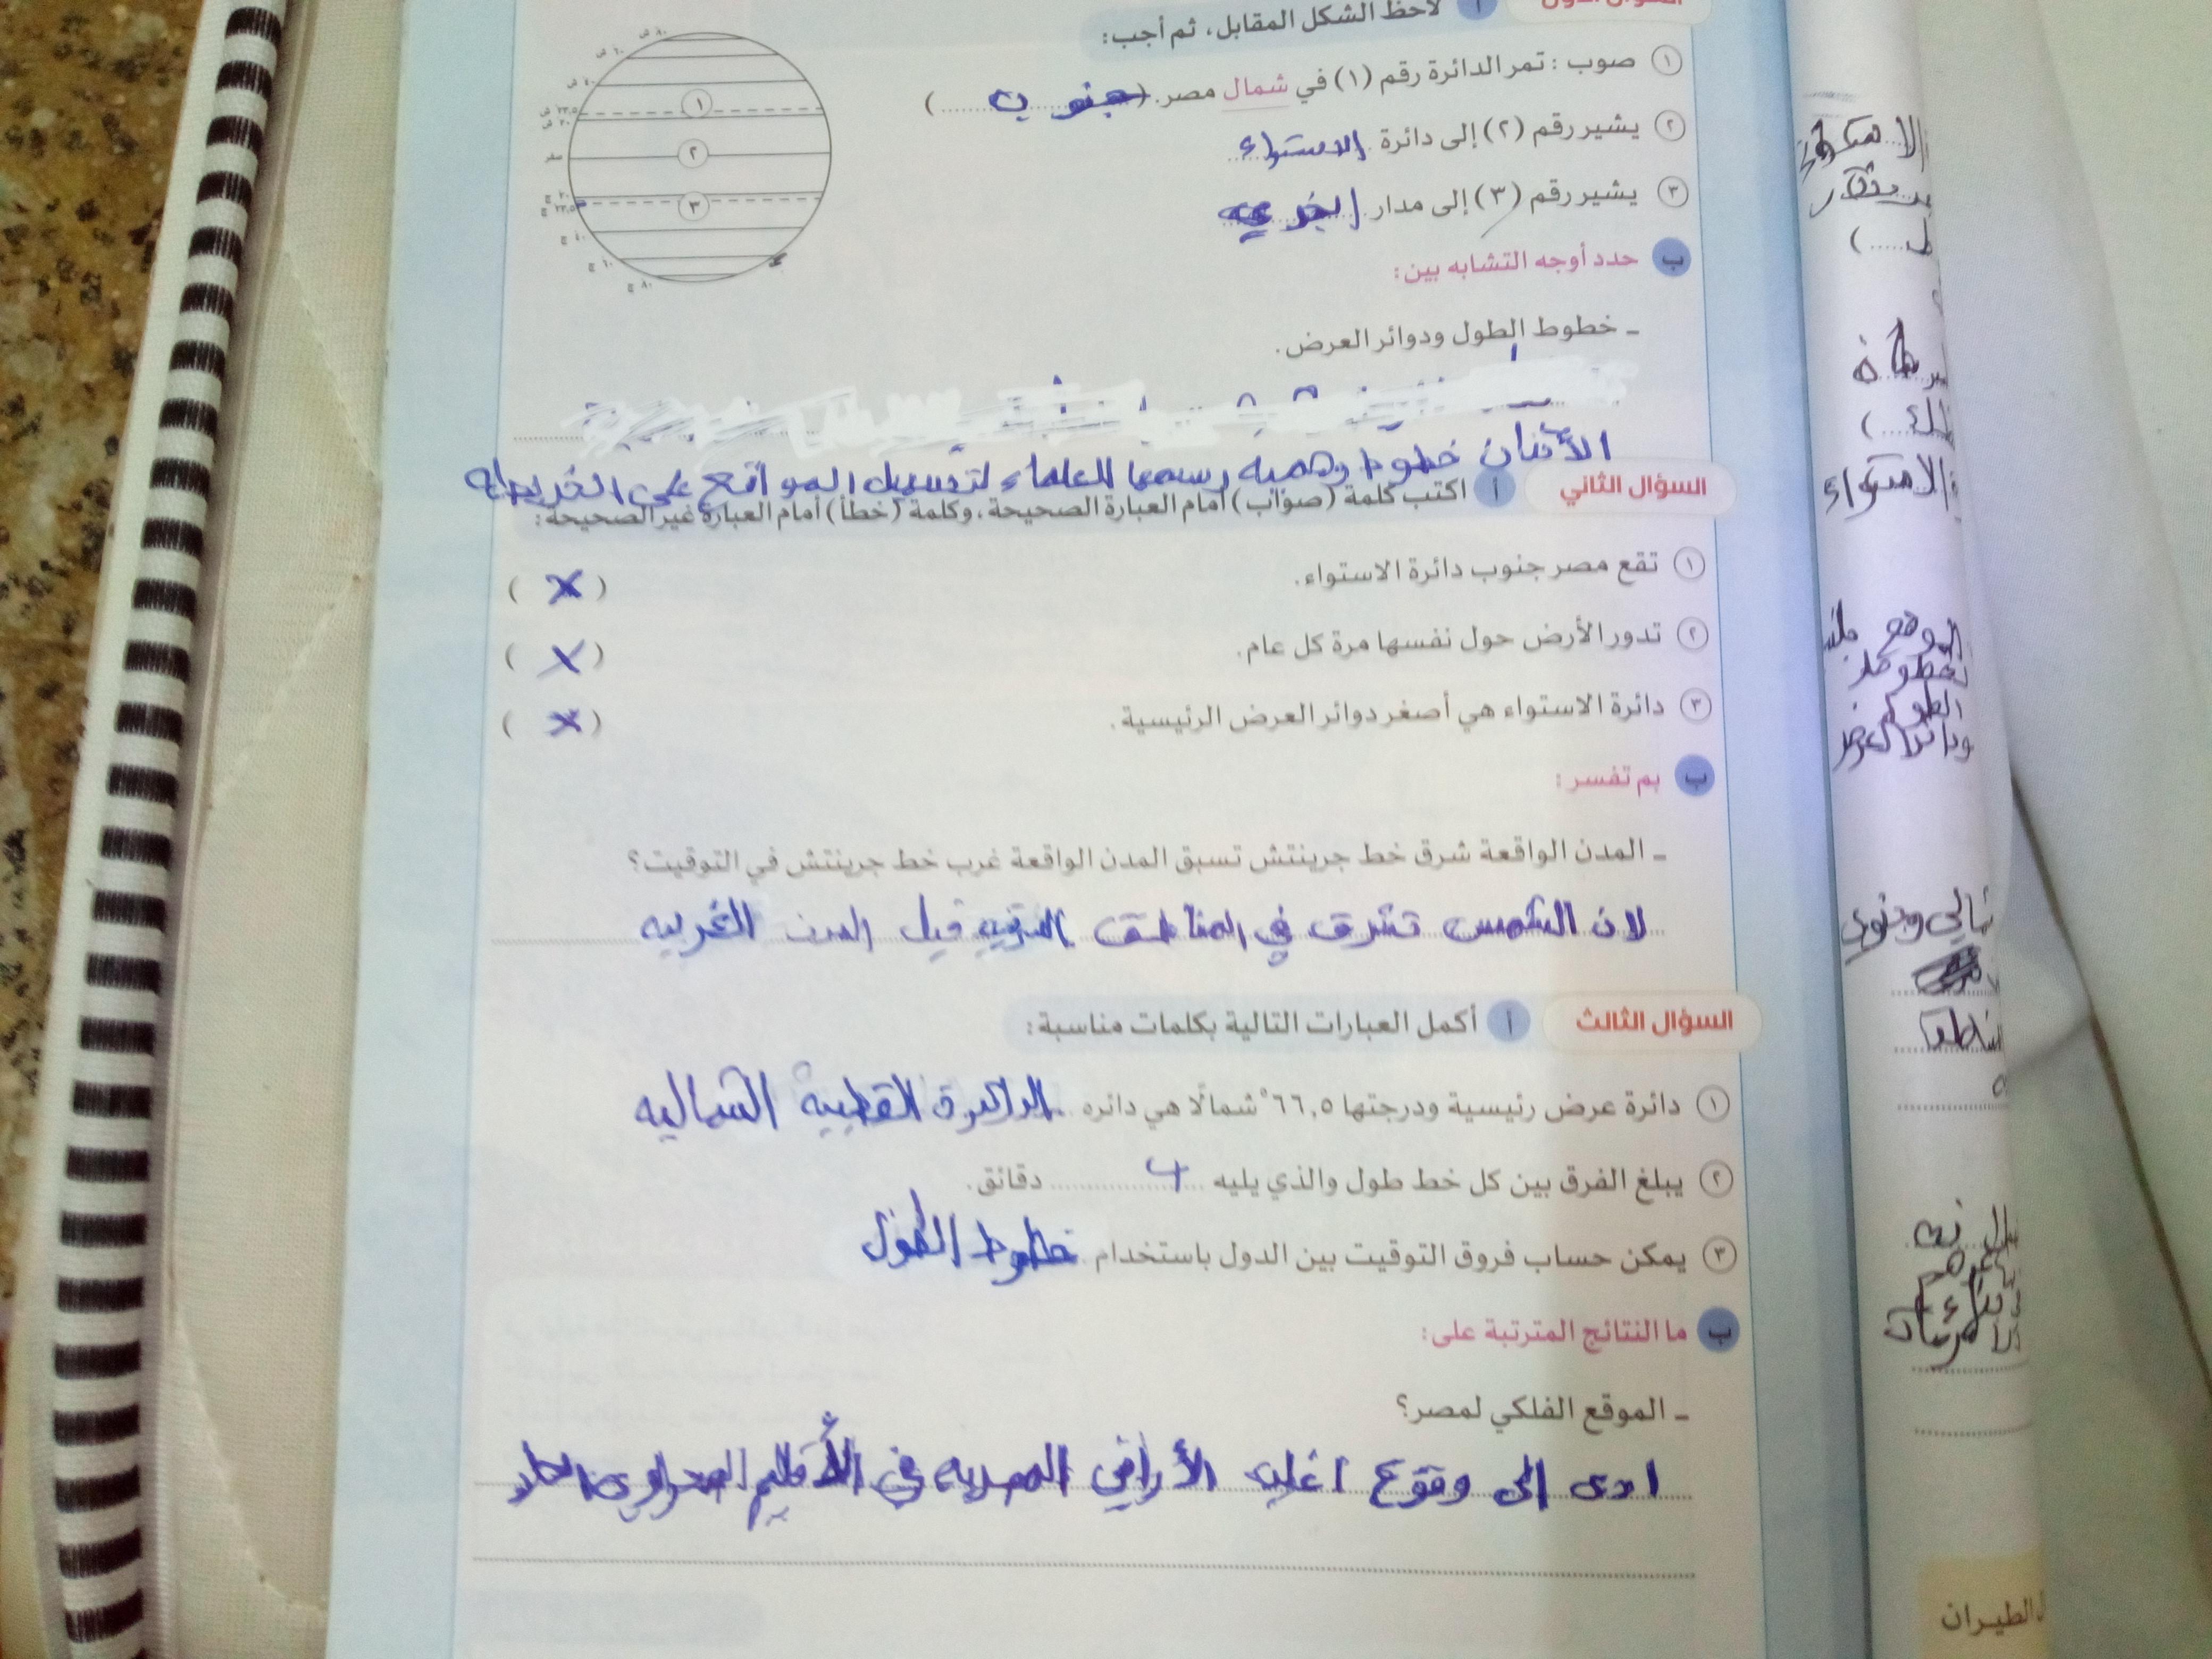 السؤال الأول أ لاحظ الشكل المقابل، ثم أجب:
١ صوب : تمر الدائرة رقم (١) في شمال مصر. (جنوب)
٢ يشير رقم (٢) إلى دائرة الاستواء
٣ يشير رقم (٣) إلى مدار الجدي
٨٠ ش
٦٠ ش
٤٠ ش
٢٣,٥ ش
٢٠ ش
صفر
٢٠ ج
٢٣,٥ ج
٤٠ ج
٦٠ ج
٨٠ ج
١
٢
٣
ب حدد أوجه التشابه بين:
- خطوط الطول ودوائر العرض.
الأثنان خطوط وهميه رسمها العلماء لتسهيل المواقع على الخريطه
السؤال الثاني أ اكتب كلمة (صواب) أمام العبارة الصحيحة، وكلمة (خطأ) أمام العبارة غير الصحيحة:
١ تقع مصر جنوب دائرة الاستواء. (X)
٢ تدور الأرض حول نفسها مرة كل عام. (X)
٣ دائرة الاستواء هي أصغر دوائر العرض الرئيسية. (X)
ب بم تفسر :
- المدن الواقعة شرق خط جرينتش تسبق المدن الواقعة غرب خط جرينتش في التوقيت؟
لان الشمس تشرق في المناطق الشرقيه قبل المدن الغربيه
السؤال الثالث أ أكمل العبارات التالية بكلمات مناسبة:
١ دائرة عرض رئيسية ودرجتها ٦٦,٥° شمالًا هي دائره الدائرة القطبية الشماليه
٢ يبلغ الفرق بين كل خط طول والذي يليه ٤ دقائق.
٣ يمكن حساب فروق التوقيت بين الدول باستخدام خطوط الطول
ب ما النتائج المترتبة على:
- الموقع الفلكي لمصر؟
ادى الى وقوع اغلب الأراضي المصريه في الأقليم الصحراوي الحار
الاستواء
شمالي وجنوبي
ل الطيران